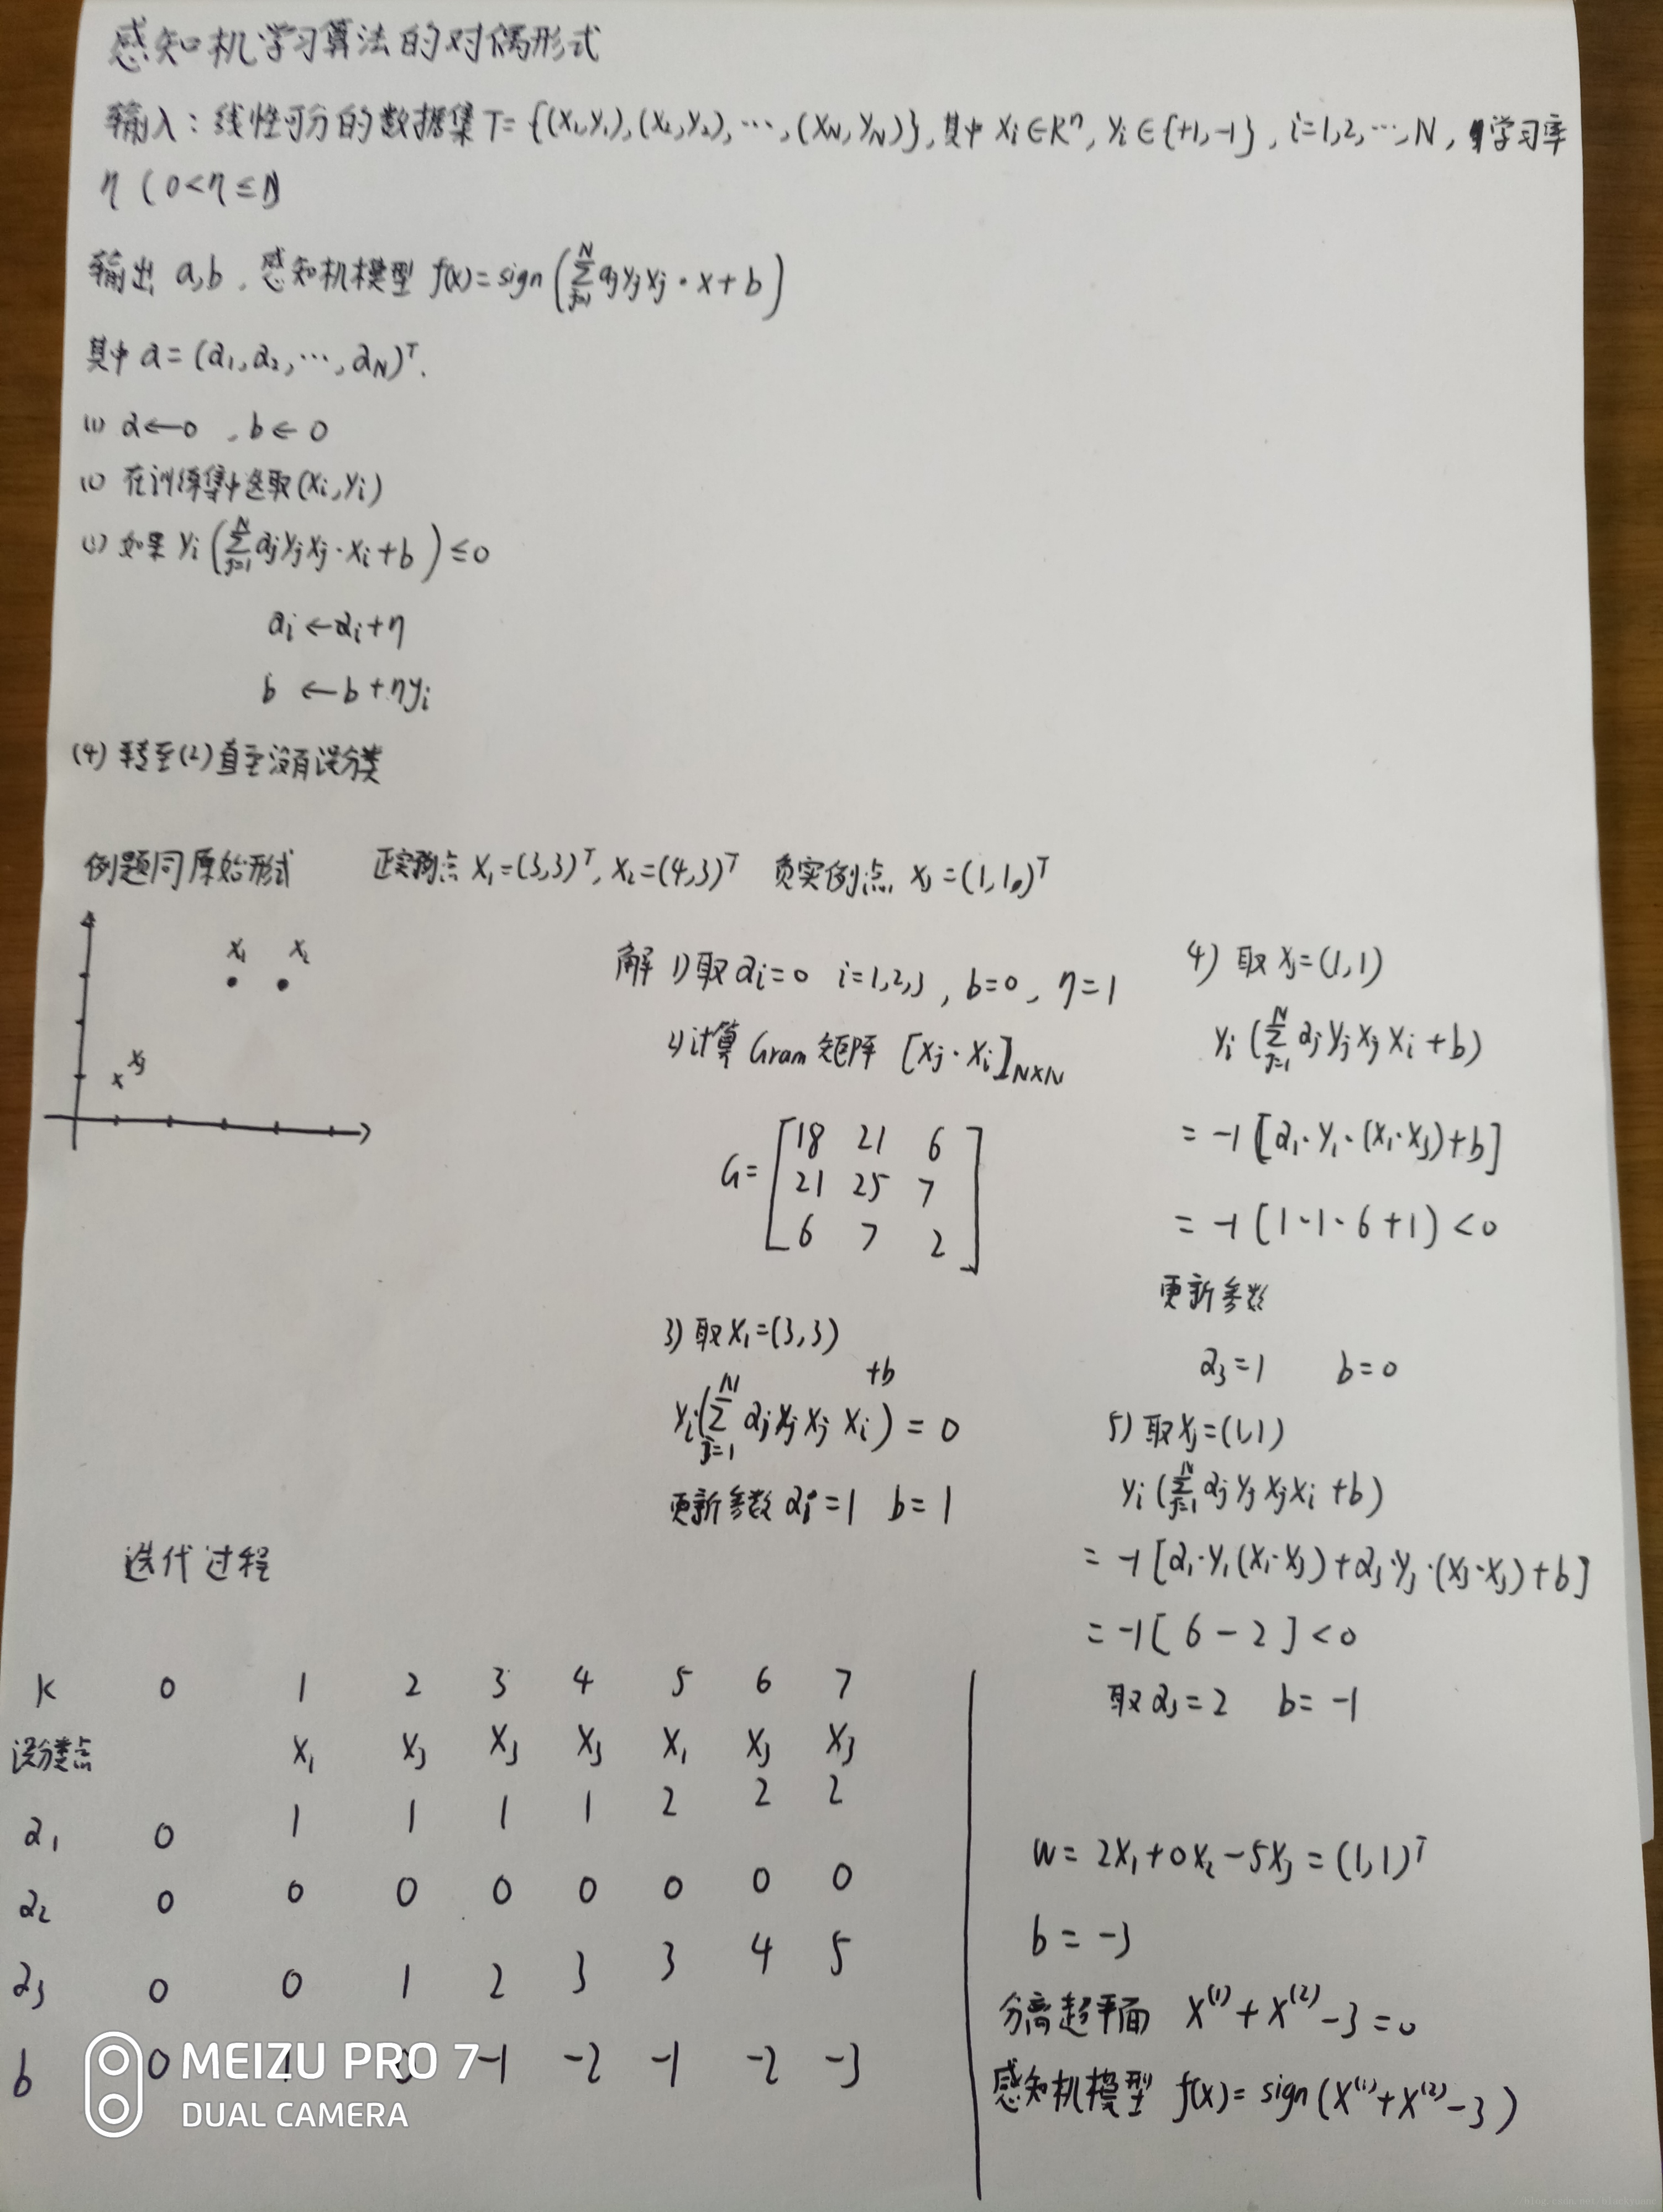 感知机学习算法的对偶形式
输入：线性可分的数据集 T={(x₁,y₁),(x₂,y₂),⋯,(x_N,y_N)},其中 xᵢ∈Rⁿ, yᵢ∈{+1,-1}, i=1,2,⋯,N, 学习率
η (0<η≤1)
输出 a,b . 感知机模型 f(x)=sign(∑_{j=1}^N αⱼyⱼxⱼ·x+b)
其中 α=(α₁,α₂,⋯,α_N)ᵀ.
(1) α←0 , b←0
(2) 在训练集中选取(xᵢ,yᵢ)
(3) 如果 yᵢ(∑_{j=1}^N αⱼyⱼxⱼ·xᵢ+b)≤0
αᵢ←αᵢ+η
b ←b+ηyᵢ
(4) 转至(2)直至没有误分类
例题同原始形式 正实例点 x₁=(3,3)ᵀ, x₂=(4,3)ᵀ 负实例点 x₃=(1,1)ᵀ
x₁ x₂
x x₃
解 1)取 αᵢ=0 i=1,2,3 , b=0, η=1
2)计算 Gram 矩阵 [xⱼ·xᵢ]_{N×N}
G= [18 21 6
21 25 7
6 7 2]
3) 取 x₁=(3,3)
+b
yᵢ(∑_{j=1}^N αⱼyⱼxⱼxᵢ) = 0
更新参数 αᵢ=1 b=1
4) 取 x₃=(1,1)
yᵢ(∑_{j=1}^N αⱼyⱼxⱼxᵢ+b)
= -1[α₁·y₁·(x₁·x₃)+b]
= -1(1·1·6+1)<0
更新参数
α₃=1 b=0
5) 取 x₃=(1,1)
yᵢ(∑_{j=1}^N αⱼyⱼxⱼxᵢ+b)
= -1[α₁·y₁(x₁·x₃)+α₃·y₃·(x₃·x₃)+b]
= -1[6-2]<0
取 α₃=2 b=-1
迭代过程
K 0 1 2 3 4 5 6 7
误分类点 x₁ x₃ x₃ x₃ x₁ x₃ x₃
α₁ 0 1 1 1 1 2 2 2
α₂ 0 0 0 0 0 0 0 0
α₃ 0 0 1 2 3 3 4 5
b 0 1 0 -1 -2 -1 -2 -3
w=2x₁+0x₂-5x₃=(1,1)ᵀ
b=-3
分离超平面 x⁽¹⁾+x⁽²⁾-3=0
感知机模型 f(x)=sign(x⁽¹⁾+x⁽²⁾-3)
MEIZU PRO 7
DUAL CAMERA